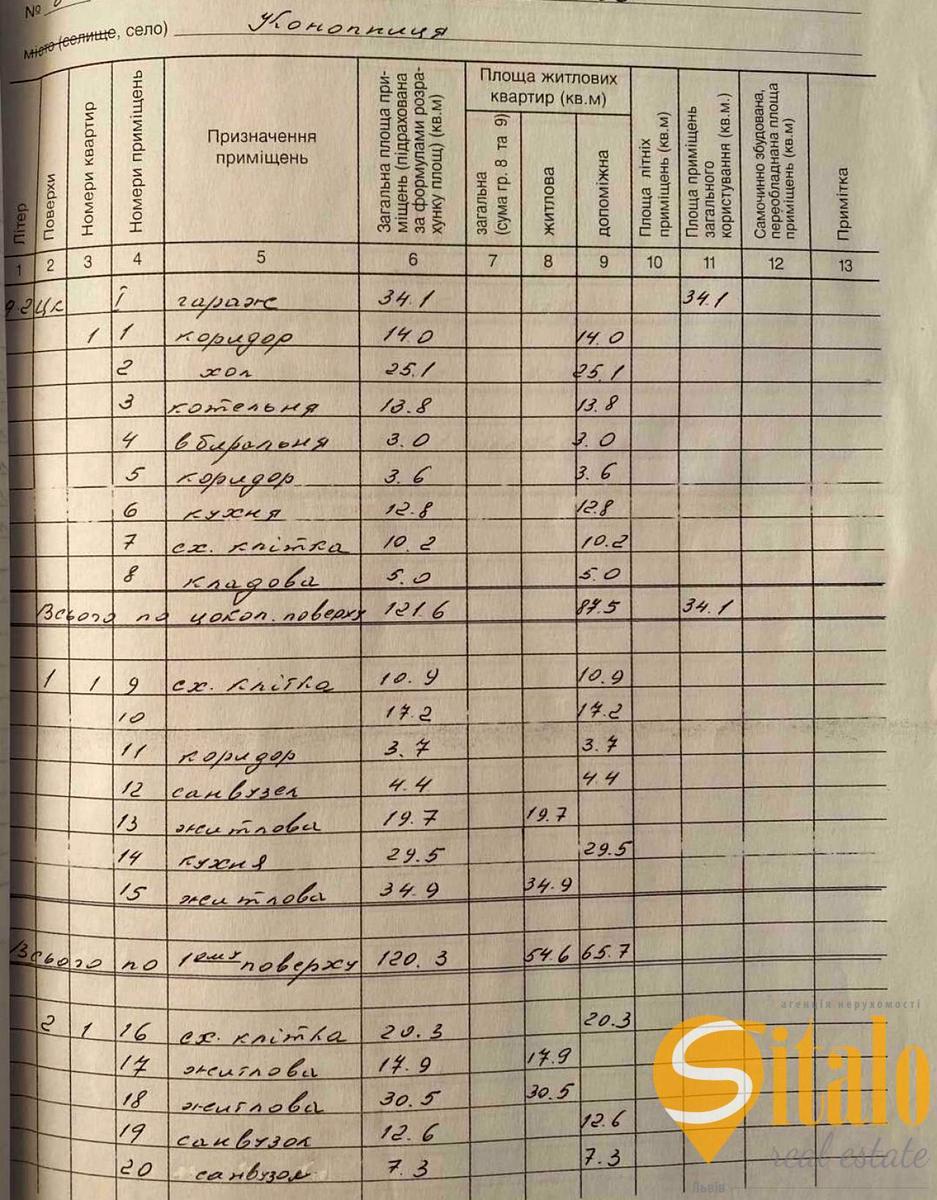 №
місто (селище, село) Конопниця
Літер
Поверхи
Номери квартир
Номери приміщень
Призначення
приміщень
Загальна площа при-
міщень (підрахована
за формулами розра-
хунку площ) (кв.м)
Площа житлових
квартир (кв.м)
загальна
(сума гр. 8 та 9)
житлова
допоміжна
Площа літніх
приміщень (кв.м)
Площа приміщень
загального
користування (кв.м.)
Самочинно збудована,
переобладнана площа
приміщень (кв.м)
Примітка
1 2 3 4 5 6 7 8 9 10 11 12 13
цк I гараж 34.1 34.1
1 1 коридор 14.0 14.0
2 хол 25.1 25.1
3 котельня 13.8 13.8
4 вбиральня 3.0 3.0
5 коридор 3.6 3.6
6 кухня 12.8 12.8
7 сх. клітка 10.2 10.2
8 кладова 5.0 5.0
Всього по цокол. поверху 121.6 87.5 34.1
1 1 9 сх. клітка 10.9 10.9
10 17.2 17.2
11 коридор 3.7 3.7
12 санвузел 4.4 4.4
13 житлова 19.7 19.7
14 кухня 29.5 29.5
15 житлова 34.9 34.9
Всього по 1ому поверху 120.3 54.6 65.7
2 1 16 сх. клітка 20.3 20.3
17 житлова 17.9 17.9
18 житлова 30.5 30.5
19 санвузол 12.6 12.6
20 санвузол 7.3 7.3
агенція нерухомості
Sitalo
real estate
Львів